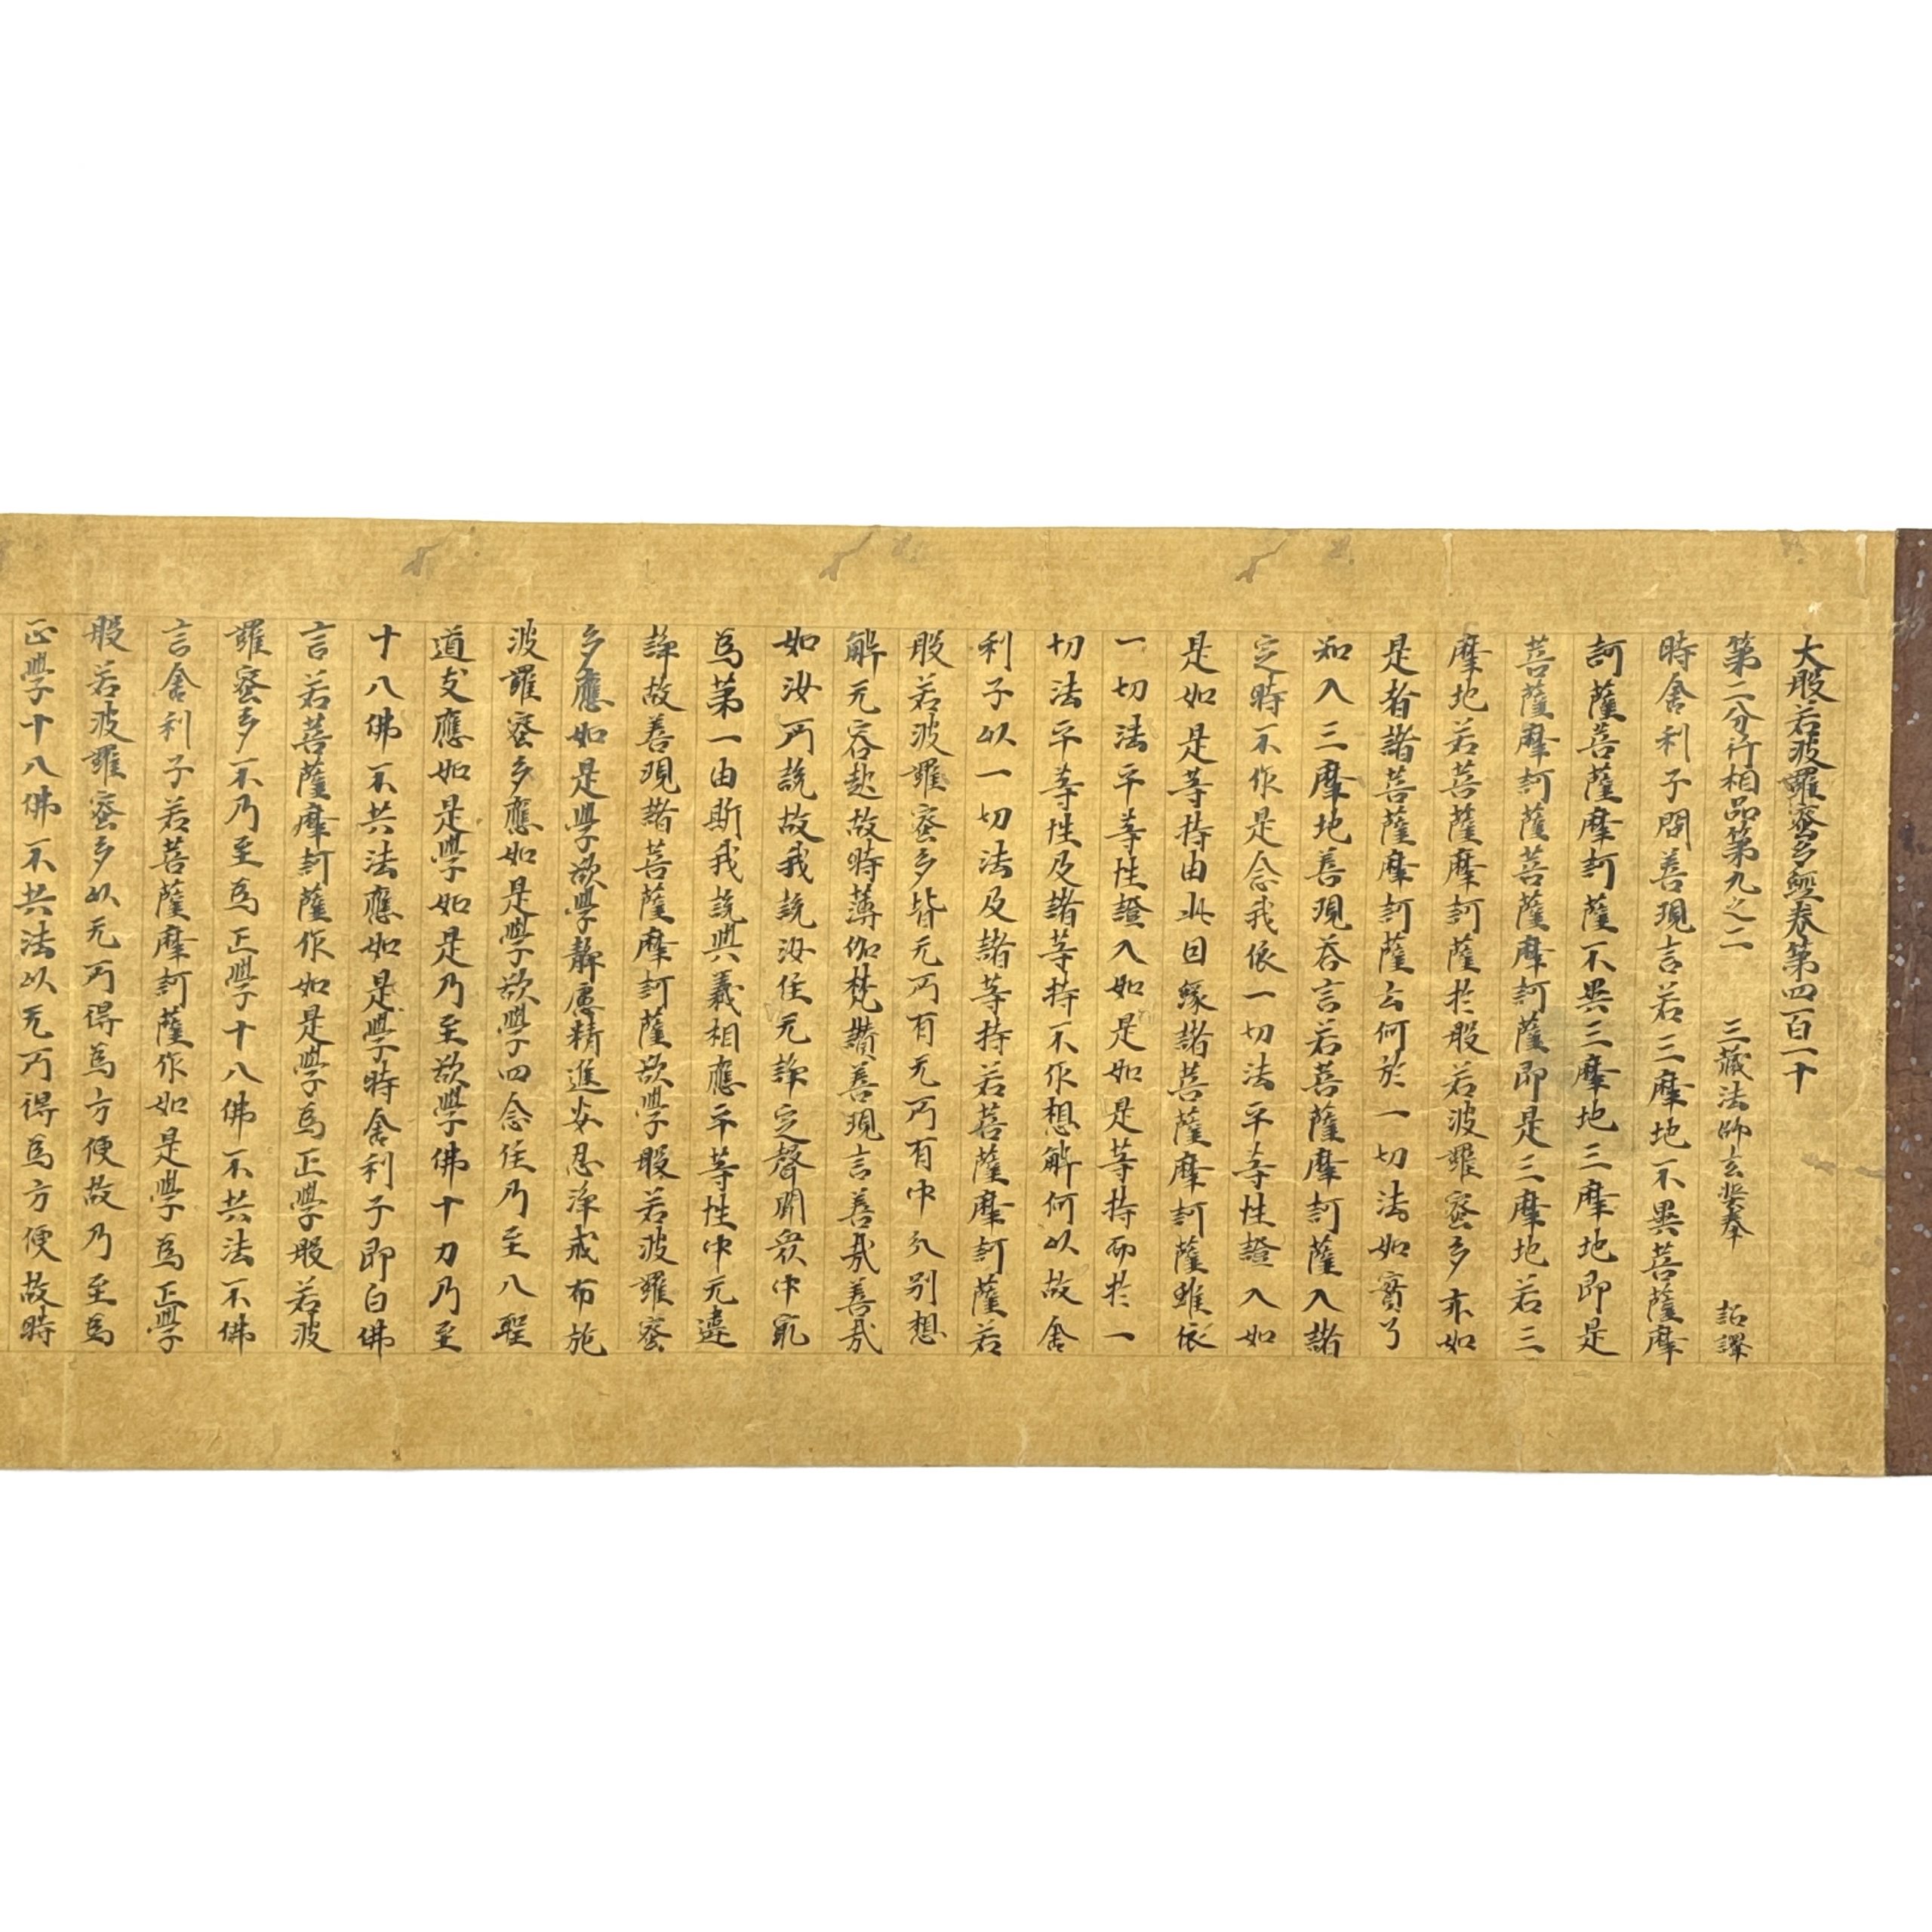 大般若波羅蜜多經卷第四百一十
第二分行相品第九之二　三藏法師玄奘奉　詔譯
時舍利子問善現言若三摩地不異菩薩摩
訶薩菩薩摩訶薩不異三摩地三摩地即是
菩薩摩訶薩菩薩摩訶薩即是三摩地若三
摩地若菩薩摩訶薩於般若波羅蜜多亦如
是者諸菩薩摩訶薩云何於一切法如實了
知入三摩地善現荅言若菩薩摩訶薩入諸
定時不作是念我依一切法平等性證入如
是如是等持由此因緣諸菩薩摩訶薩雖依
一切法平等性證入如是如是等持而於一
切法平等性及諸等持不作想解何以故舍
利子以一切法及諸等持若菩薩摩訶薩若
般若波羅蜜多皆无所有无所有中分別想
解无容起故時薄伽梵讚善現言善哉善哉
如汝所說故我說汝住无諍定聲聞眾中冣
為第一由斯我說與義相應平等性中无違
諍故善現諸菩薩摩訶薩欲學般若波羅蜜
多應如是學欲學靜慮精進安忍淨戒布施
波羅蜜多應如是學欲學四念住乃至八聖
道支應如是學如是乃至欲學佛十力乃至
十八佛不共法應如是學時舍利子即白佛
言若菩薩摩訶薩作如是學為正學般若波
羅蜜多不乃至為正學十八佛不共法不佛
言舍利子若菩薩摩訶薩作如是學為正學
般若波羅蜜多以无所得為方便故乃至為
正學十八佛不共法以无所得為方便故時